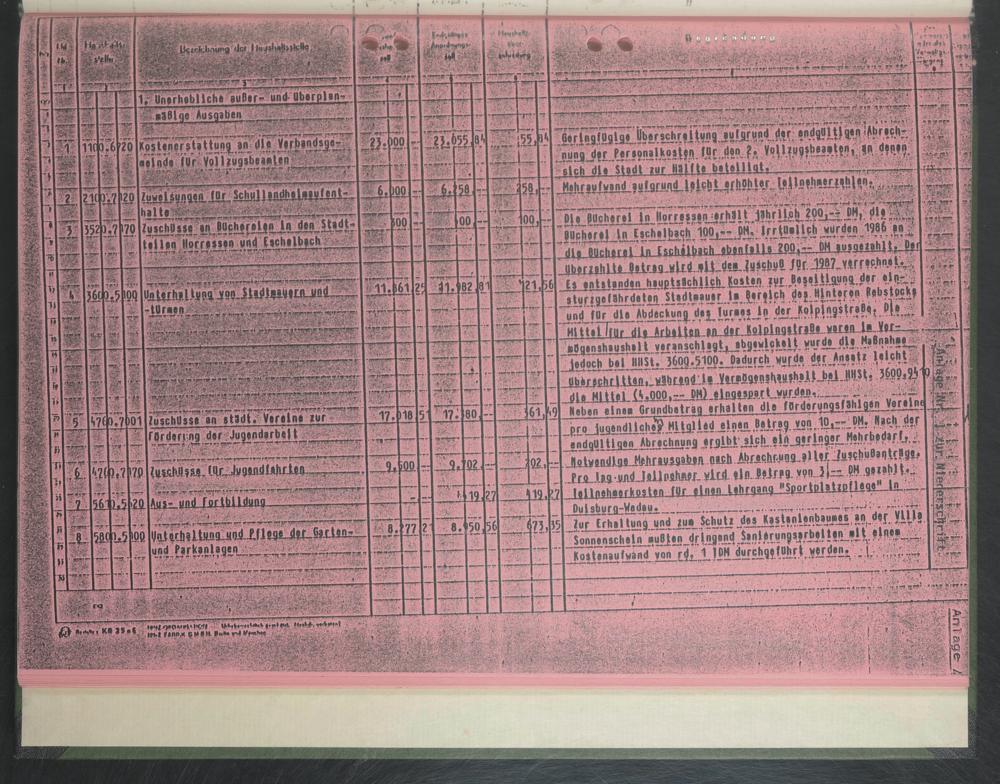 Bezeichnung der Haushaltsstelle
Begründung
1. Unerhebliche außer- und überplan-
mäßige Ausgaben
1 1100.6720 Kostenerstattung an die Verbandsge- 23.000 23.055,84 55,84 Geringfügige Überschreitung aufgrund der endgültigen Abrech-
meinde für Vollzugsbeamten nung der Personalkosten für den 2. Vollzugsbeamten, an denen
sich die Stadt zur Hälfte beteiligt.
2 2100.7120 Zuweisungen für Schullandheimaufent- 6.000 6.258,-- 258,-- Mehraufwand aufgrund leicht erhöhter Teilnehmerzahlen.
halte
3 3520.7170 Zuschüsse an Büchereien in den Stadt- 300 400,-- 100,-- Die Bücherei in Horressen erhält jährlich 200,-- DM, die
teilen Horressen und Eschelbach Bücherei in Eschelbach 100,-- DM. Irrtümlich wurden 1986 an
die Bücherei in Eschelbach ebenfalls 200,-- DM ausgezahlt. Der
überzahlte Betrag wird mit dem Zuschuß für 1987 verrechnet.
4 3600.5100 Unterhaltung von Stadtmauern und 11.861,25 11.982,81 121,56 Es entstanden hauptsächlich Kosten zur Beseitigung der ein-
-türmen sturzgefährdeten Stadtmauer im Bereich des Hinteren Rebstocks
und für die Abdeckung des Turmes in der Kolpingstraße. Die
Mittel für die Arbeiten an der Kolpingstraße waren im Ver-
mögenshaushalt veranschlagt, abgewickelt wurde die Maßnahme
jedoch bei HHSt. 3600.5100. Dadurch wurde der Ansatz leicht
überschritten, während im Vermögenshaushalt bei HHSt. 3600.9410
die Mittel (4.000,-- DM) eingespart wurden.
5 4760.7001 Zuschüsse an städt. Vereine zur 17.018,51 17.380,-- 361,49 Neben einem Grundbetrag erhalten die förderungsfähigen Vereine
Förderung der Jugendarbeit pro jugendliches Mitglied einen Betrag von 10,-- DM. Nach der
endgültigen Abrechnung ergibt sich ein geringer Mehrbedarf.
6 4760.7170 Zuschüsse für Jugendfahrten 9.500 9.702,-- 202,-- Notwendige Mehrausgaben nach Abrechnung aller Zuschußanträge.
Pro Tag und Teilnehmer wird ein Betrag von 3,-- DM gezahlt.
7 5610.5620 Aus- und Fortbildung -,-- 419,27 419,27 Teilnehmerkosten für einen Lehrgang "Sportplatzpflege" in
Duisburg-Wedau.
8 5800.5100 Unterhaltung und Pflege der Garten- 8.277,21 8.950,56 673,35 Zur Erhaltung und zum Schutz des Kastanienbaumes an der Villa
und Parkanlagen Sonnenschein mußten dringend Sanierungsarbeiten mit einem
Kostenaufwand von rd. 1 TDM durchgeführt werden.
Anlage Nr. 1 zur Niederschrift
Anlage